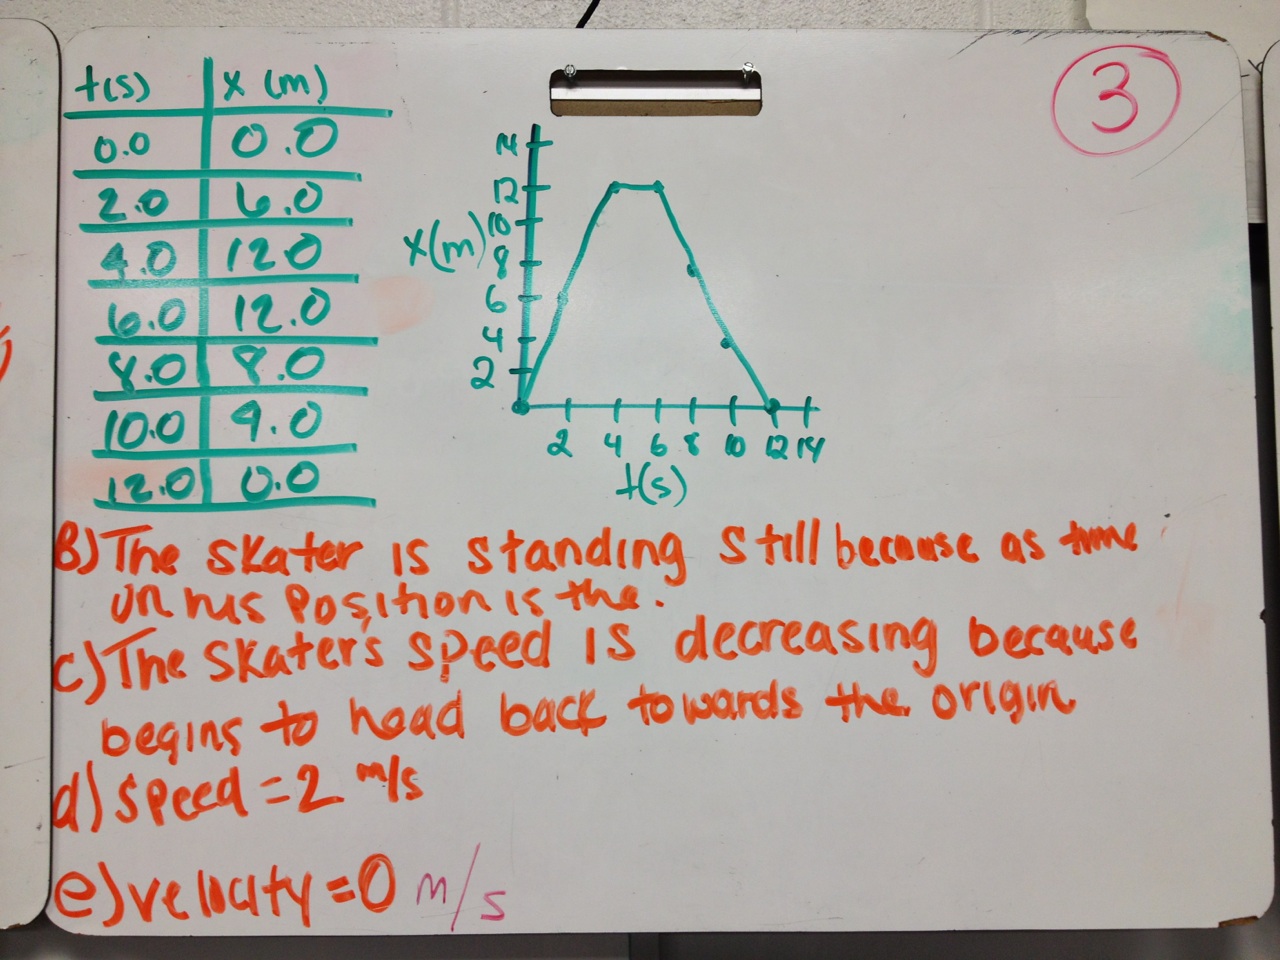 3
t(s) x (m)
0.0 0.0
2.0 6.0
4.0 12.0
6.0 12.0
8.0 8.0
10.0 4.0
12.0 0.0
14
12
10
x(m) 8
6
4
2
2 4 6 8 10 12 14
t(s)
B) The skater is standing still because as time
on his position is the.
c) The skater's speed is decreasing because
begins to head back towards the origin
d) speed = 2 m/s
e) velocity = 0 m/s